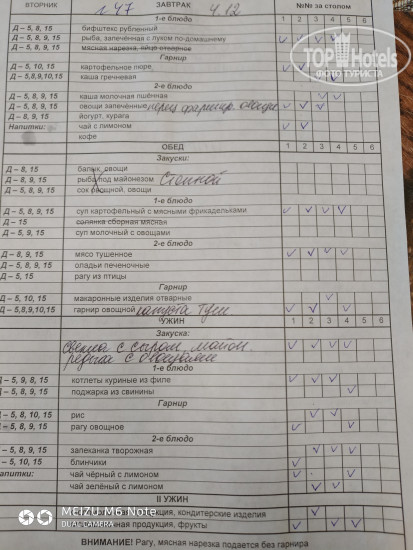 ВТОРНИК 1.47 ЗАВТРАК 4.12 №№ за столом
1-е блюдо 1 2 3 4 5 6
Д – 5, 8, 15 бифштекс рубленный
Д – 5, 8, 9, 15 рыба, запечённая с луком по-домашнему
Д – 5, 8, 9, 15 мясная нарезка, яйцо отварное
Гарнир
Д – 5, 10, 15 картофельное пюре
Д – 5,8,9,10,15 каша гречневая
2-е блюдо
каша молочная пшённая
Д – 5, 8, 9, 15 овощи запечённые перец фаршир. овощ
Д – 8, 9, 15 йогурт, курага
Напитки: чай с лимоном
кофе
ОБЕД 1 2 3 4 5 6
Закуски:
Д – 8, 15 балык, овощи
Д – 8, 9, 15 рыба под майонезом Стопкой
Д – 5, 8, 9, 15 сок овощной, овощи
1-е блюдо
Д – 5, 8, 9, 15 суп картофельный с мясными фрикадельками
Д – 5, 15 солянка сборная мясная
Д – 5, 9, 15 суп молочный с овощами
2-е блюдо
Д – 8, 9, 15 мясо тушенное
Д – 5, 8, 9, 15 оладьи печеночные
Д – 5, 15 рагу из птицы
Гарнир
Д – 5, 10, 15 макаронные изделия отварные
Д – 5,8,9,10,15 гарнир овощной капуста туш
УЖИН 1 2 3 4 5 6
Закуска:
свекла с сыром, майон.
редька с овощами
1-е блюдо
Д – 5, 9, 8, 15 котлеты куриные из филе
Д – 5, 15 поджарка из свинины
Гарнир
Д – 5, 8, 10, 15 рис
Д – 5, 8, 9, 15 рагу овощное
2-е блюдо
– 5, 8, 9, 15 запеканка творожная
– 5, 10, 15 блинчики
напитки: чай чёрный с лимоном
чай зелёный с лимоном
II УЖИН
кция, кондитерские изделия
ная продукция, фрукты
ВНИМАНИЕ! Рагу, мясная нарезка подается без гарнира
TopHotels
ФОТО ТУРИСТА
MEIZU M6 Note
DUAL CAMERA